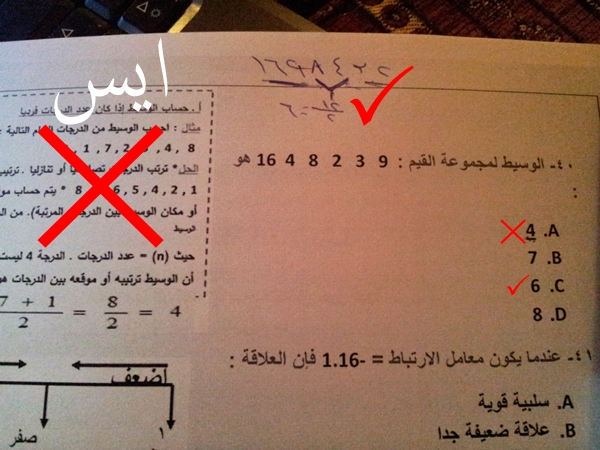 ١٦ ٩ ٨ ٤ ٣ ٢
١٢/٢ = ٦
ايس
أ. حساب الوسيط إذا كان عدد الدرجات فرديا
مثال : احسب الوسيط من الدرجات الخام التالية :
8 , 4 , 3 , 2 , 7 , 1 ,
الحل* ترتب الدرجات تصاعديا أو تنازليا . ترتيب
1 , 2 , 4 , 5 , 6 , 8 * يتم حساب
أو مكان الوسيط بين الدرجات المرتبة). من
الوسيط
حيث (n) = عدد الدرجات . الدرجة 4 ليست
أن الوسيط ترتيبه أو موقعه بين الدرجات هو
7 + 1 / 2 = 8 / 2 = 4
أضعف
صفر
١
٤٠- الوسيط لمجموعة القيم : 9 3 2 8 4 16 هو
:
A. 4
B. 7
C. 6
D. 8
٤١- عندما يكون معامل الارتباط = -1.16 فإن العلاقة :
A. سلبية قوية
B. علاقة ضعيفة جدا